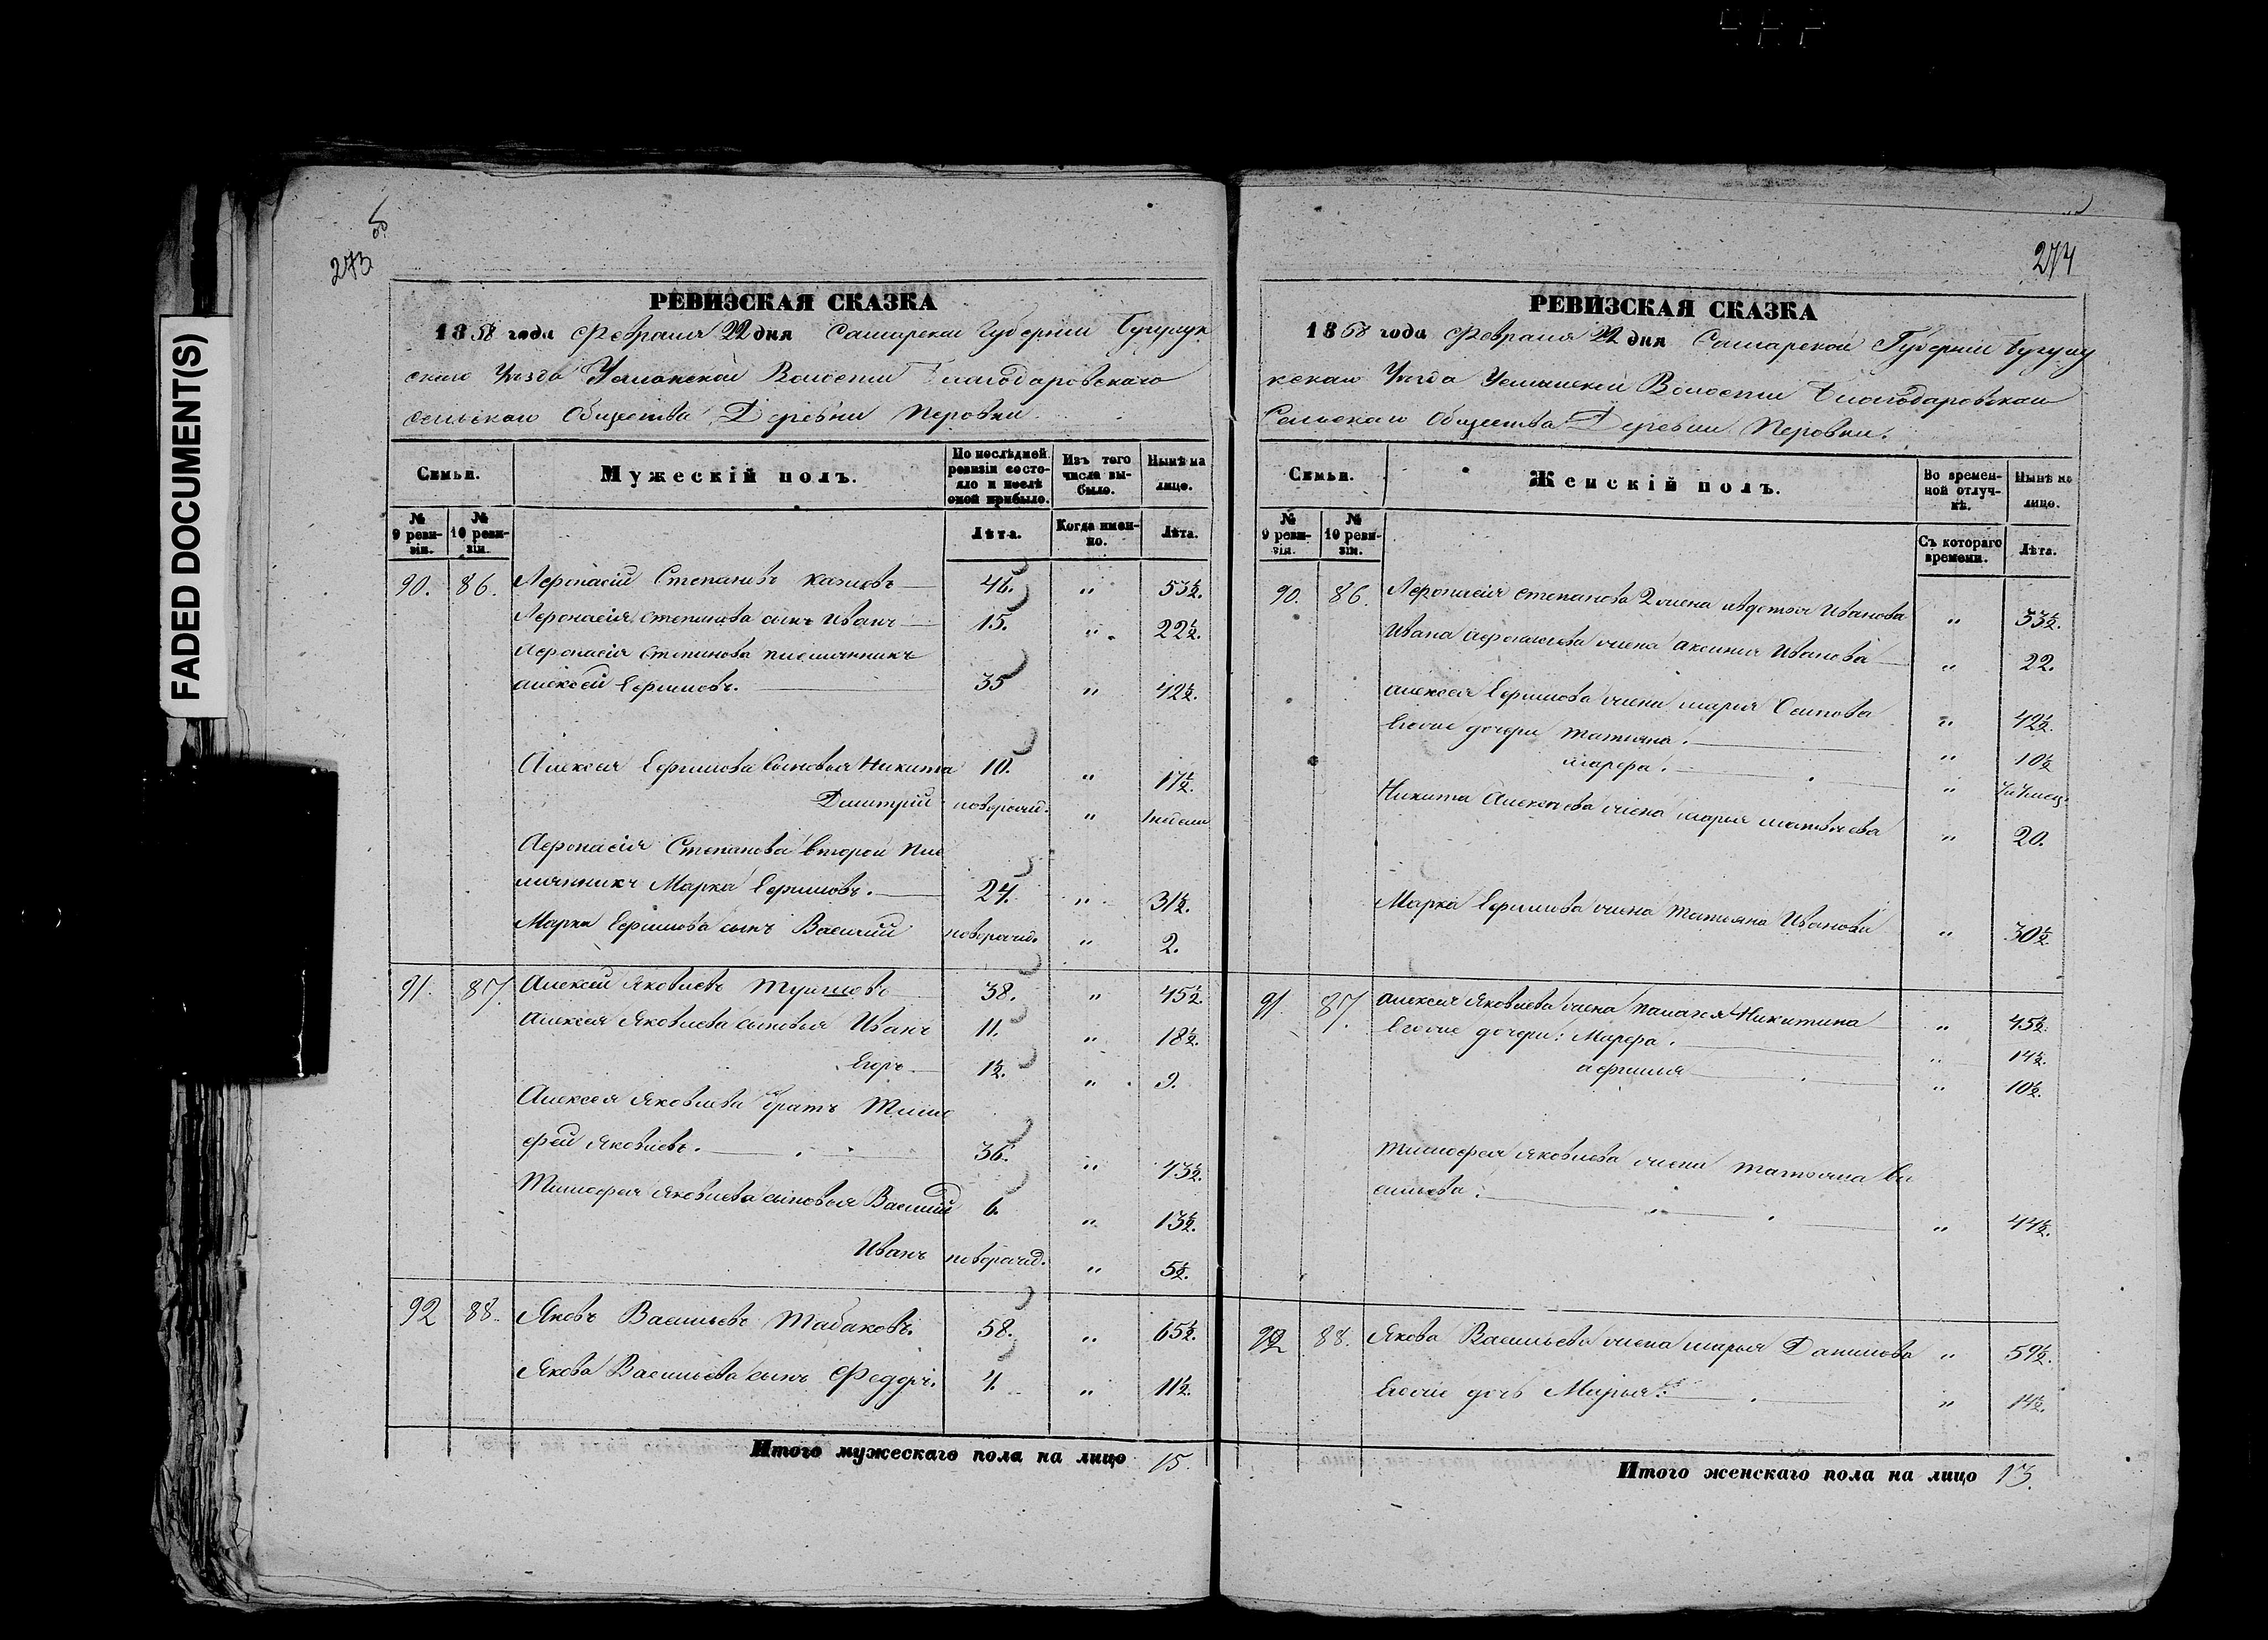 FADED DOCUMENT(S)
273
РЕВИЗСКАЯ СКАЗКА
1858 года Февраля 22 дня Самарской Губернiи Бугурук
скаго Уѣзда Усманской Волости Благодаровскаго
сельскаго Общества Деревни Перовки
Семьи. Мужескiй полъ. По послѣдней ревизiи состояло и послѣ оной прибыло. Изъ того числа выбыло. Нынѣ на лицо.
№ 9 ревизiи. № 10 ревизiи. Лѣта. Когда именно. Лѣта.
90. 86. Афонасiй Степановъ 46. " 53½.
Афонасiя Степанова сынъ Иванъ 15. " 22½.
Афонасiя Степанова племянникъ
алексѣй Ефимовъ. 35 " 42½.
Алексея Ефимова Сыновья Никита 10. " 17½.
Дмитрiй новорожд. "
Афонасiя Степанова второй пле
мянникъ Марка Ефимовъ. 24. " 31½.
Марка Ефимова сынъ Василiй новорожд. " 2.
91. 87. Алексей Яковлевъ 38. " 45½.
Алексея Яковлева сыновья Иванъ 11. " 18½.
Егоръ 1½. " 9.
Алексея Яковлева братъ Тимо
фей Яковлевъ. 36. " 43½.
Тимофея Яковлева сыновья Василiй 6. " 13½.
Иванъ новорожд. " 5½.
92 88. Яковъ Васильевъ Табаковъ. 58. " 65½.
Якова Васильева сынъ Федоръ. 4. " 11½.
Итого мужескаго пола на лицо 15
274
РЕВИЗСКАЯ СКАЗКА
1858 года Февраля 22 дня Самарской Губернiи Бугуру
кскаго Уѣзда Усманской Волости Благодаровскаго
Сельскаго Общества Деревни Перовки.
Семьи. Женскiй полъ. Во временной отлучкѣ. Нынѣ на лицо.
№ 9 ревизiи. № 10 ревизiи. Съ котораго времени. Лѣта.
90. 86. Афонасiя Степанова 2 жена авдотья Иванова " 33½.
Ивана афонасьева жена аксинья Иванова " 22.
алексея Ефимова жена марья Осипова " 42½.
Егоже дочери татьяна. " 10½
марфа. "
Никита Алексеева жена марья матвѣева " 20.
Марка Ефимова жена татьяна Иванова " 30½
91. 87. алексея Яковлева жена палагея Никитина " 45½.
Егоже дочери: Марфа. " 14½.
афимья " 10½.
тимофея Яковлева жена татьяна ва
сильева. " 44½.
92 88. Якова Васильева жена марья Данилова " 59½.
Егоже дочь Марья. " 14½.
Итого женскаго пола на лицо 13.